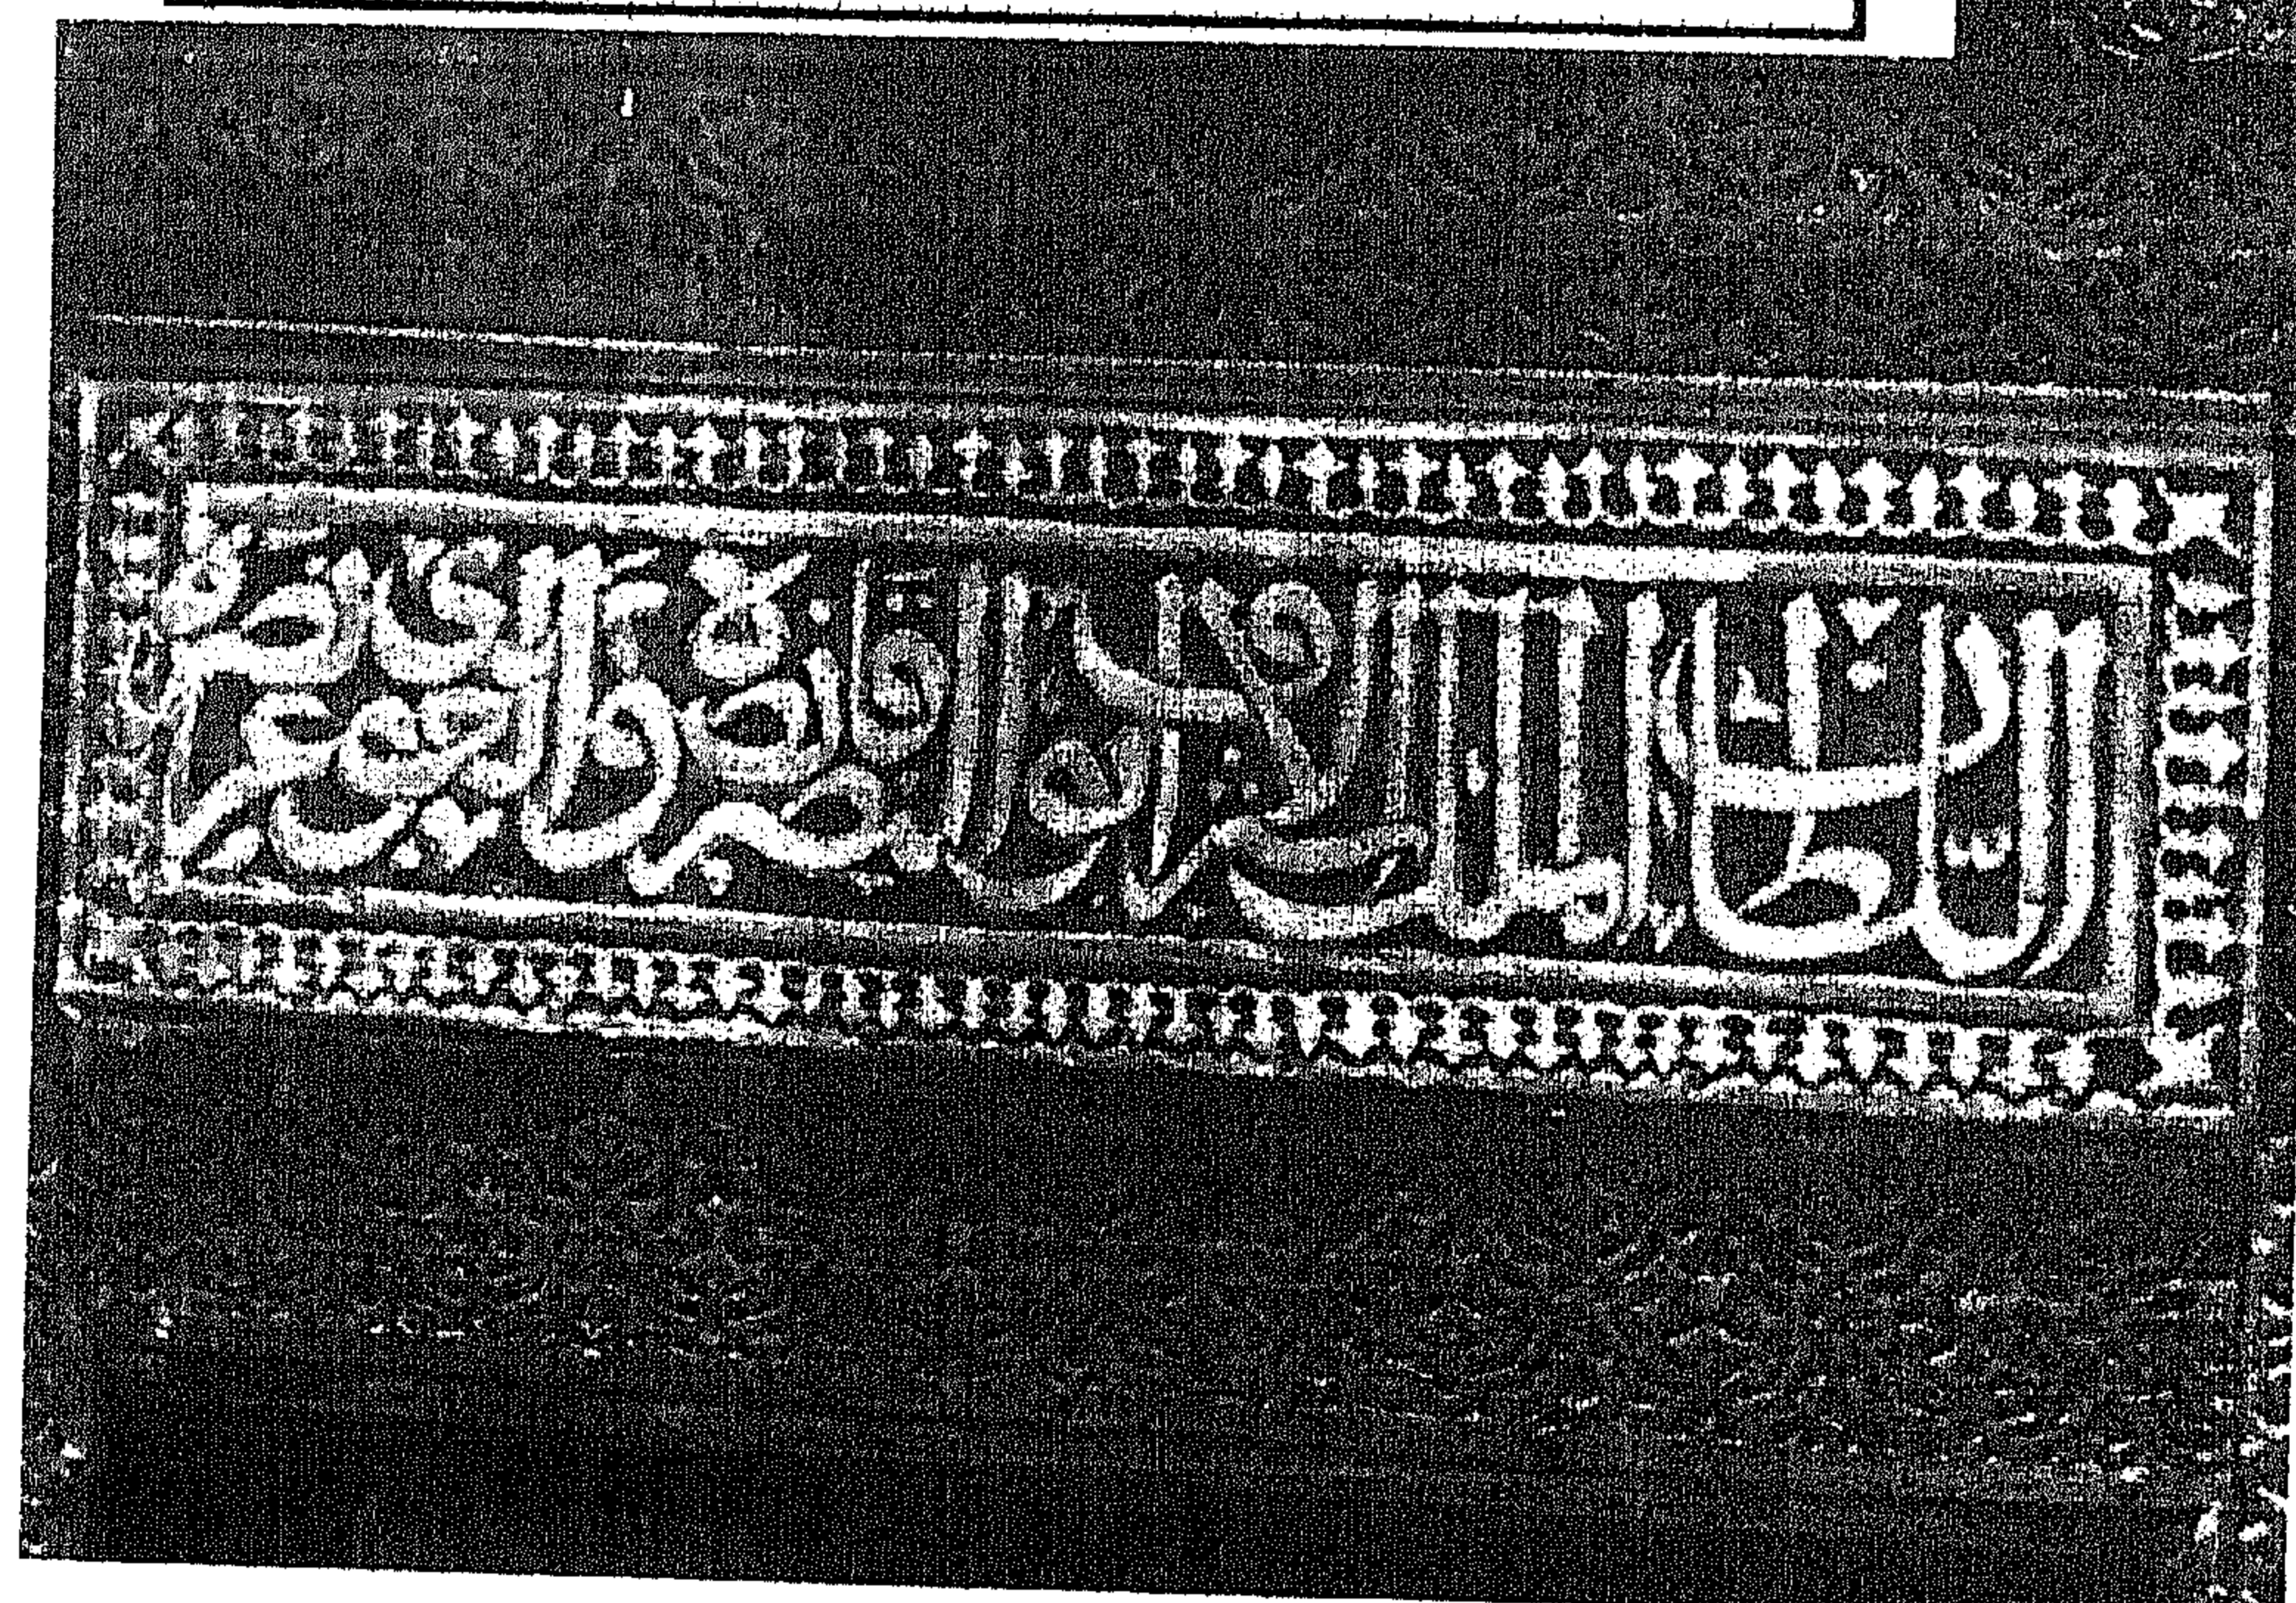 السلطان الملك الاشرف ابو النصر قانصوه الغوري عز نصره